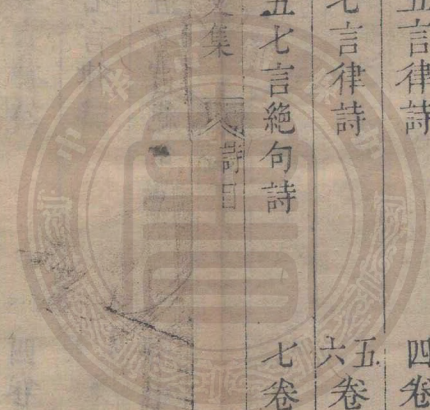 五言律詩 四卷
七言律詩 五六卷
五七言絕句詩 七卷
文集 詩目